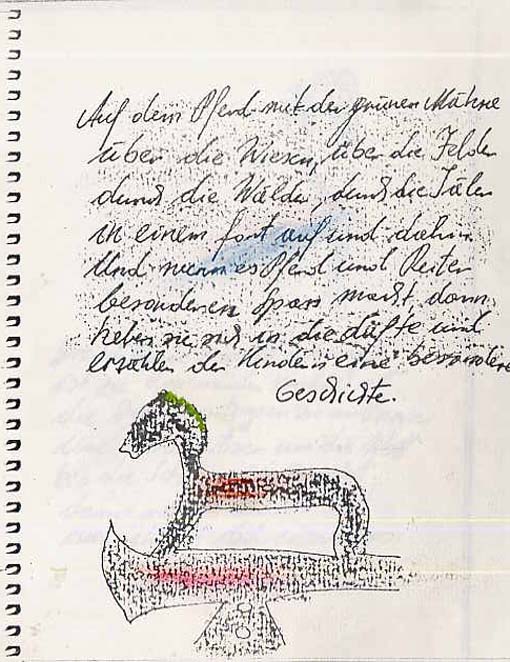 Auf dem Pferd mit der grünen Mähne
über die Wiesen, über die Felder
durch die Wälder, durch die Täler
in einem fort auf und dahin.
Und wenn es Pferd und Reiter
besonderen Spass macht, dann
heben sie sich in die Lüfte und
erzählen den Kindern eine besondere
Geschichte.